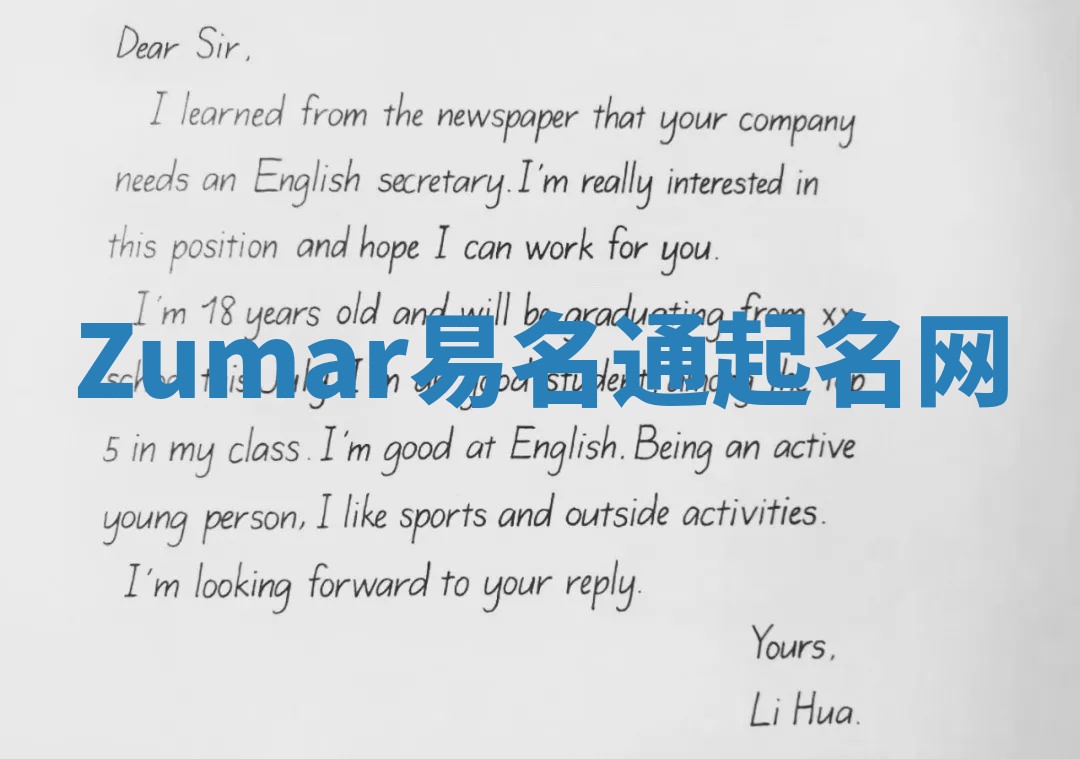 Dear Sir,
I learned from the newspaper that your company
needs an English secretary. I'm really interested in
this position and hope I can work for you.
I'm 18 years old and will be graduating from xx
Zumar易名通起名网
school this July. I'm a good student, among the top
5 in my class. I'm good at English. Being an active
young person, I like sports and outside activities.
I'm looking forward to your reply.
Yours,
Li Hua.